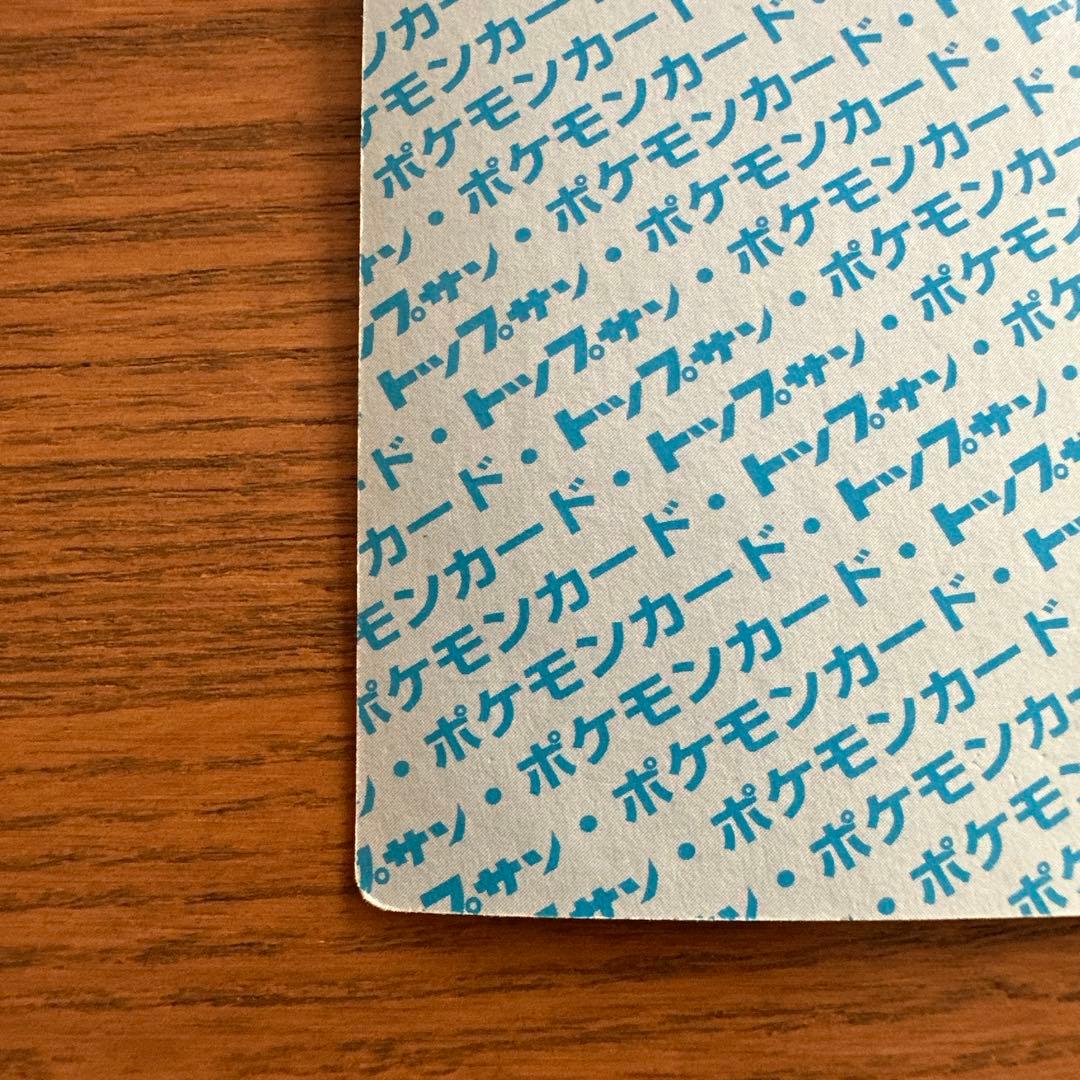 ンカー
ケモンカー
ポケモンカー
ン・ポケモンカード
プサン・ポケモンカード・
トップサン・ポケモンカード・ト
ド・トップサン・ポケモンカード・
カード・トップサン・ポケモンカ
モンカード・トップサン・ポケモン
ポケモンカード・トップサン・ポケ
・ポケモンカード・トップサン・
プサン・ポケモンカード・トップサ
プサン・ポケモンカード・ト
サン・ポケモンカード
・ポケモンカ
ポケモ
ポ